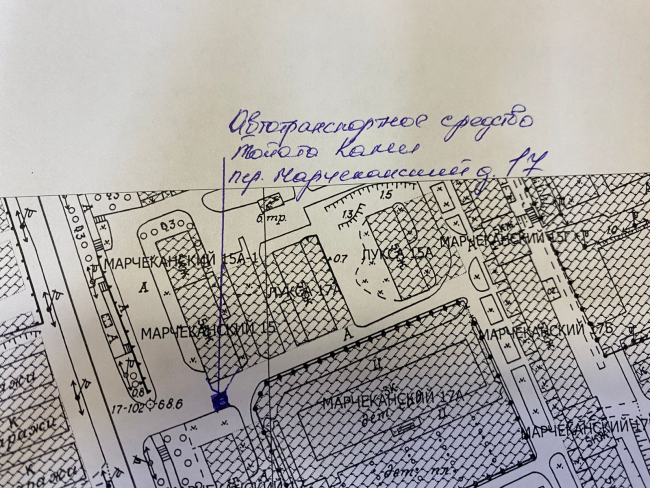 Автотранспортное средство
Тойота Камри
пер. Марчеканский д. 17
15
0,3
6 тр.
13
МАРЧЕКАНСКИЙ 15Г
ЛУКСА 15А
МАРЧЕКАНСКИЙ 15А-1
07
А
МАРЧЕКАНСКИЙ 15
А
МАРЧЕКАНСКИЙ 17Б
Ц
МАРЧЕКАНСКИЙ 17А
17-102 68.6
дет
дет. пл.